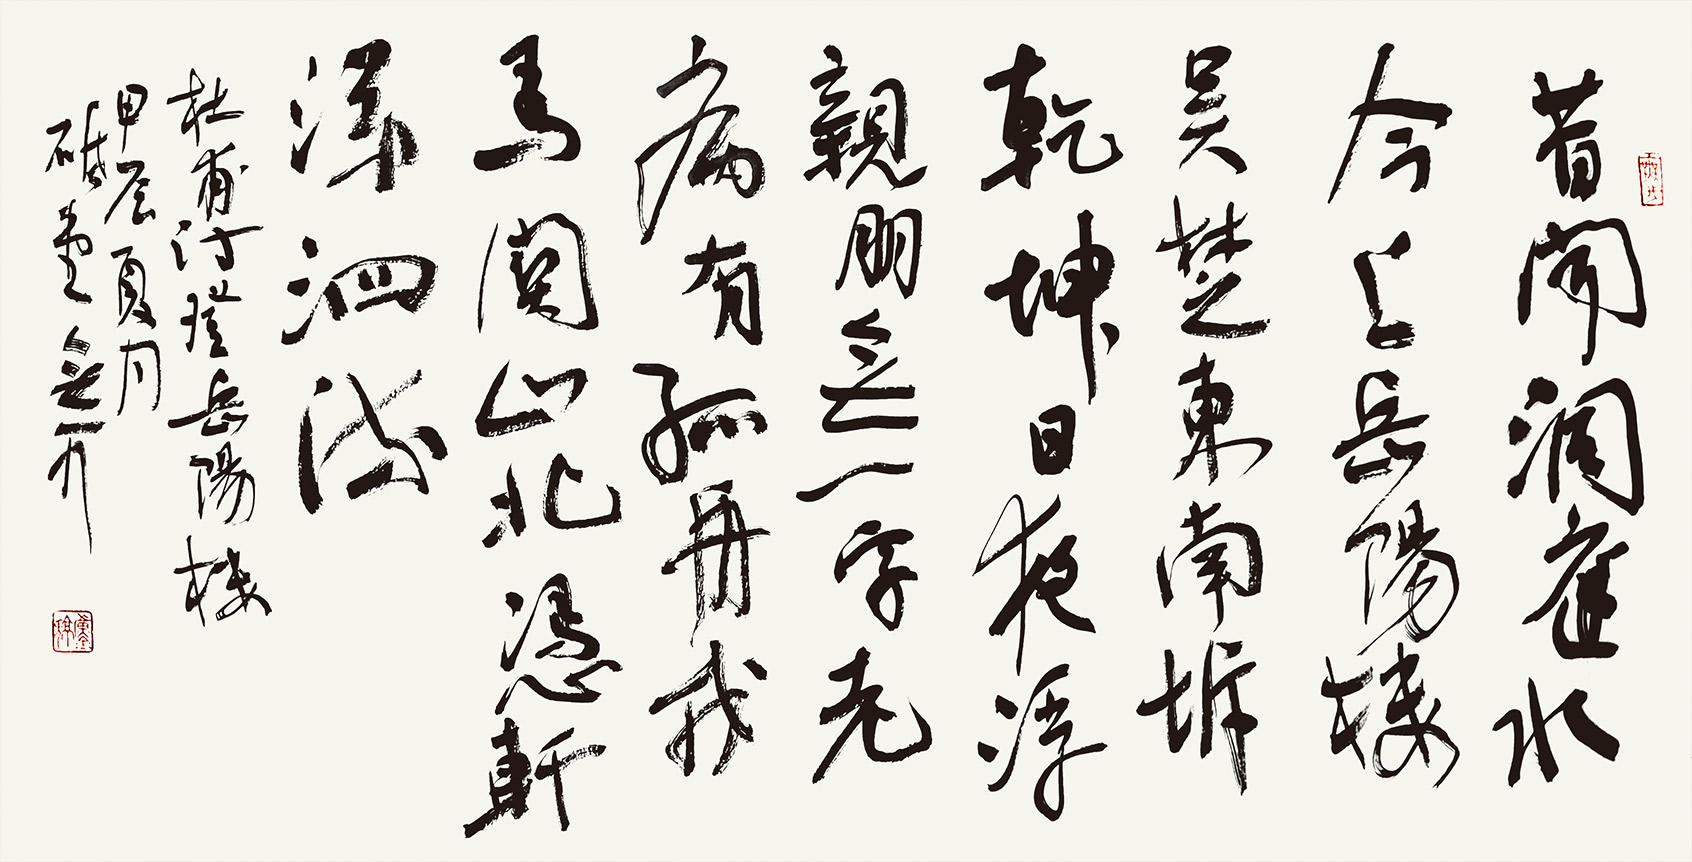 昔聞洞庭水
今上岳陽樓
吳楚東南坼
乾坤日夜浮
親朋無一字老
病有孤舟戎
馬關山北憑軒
涕泗流
杜甫詩登岳陽樓
甲辰夏月
堂